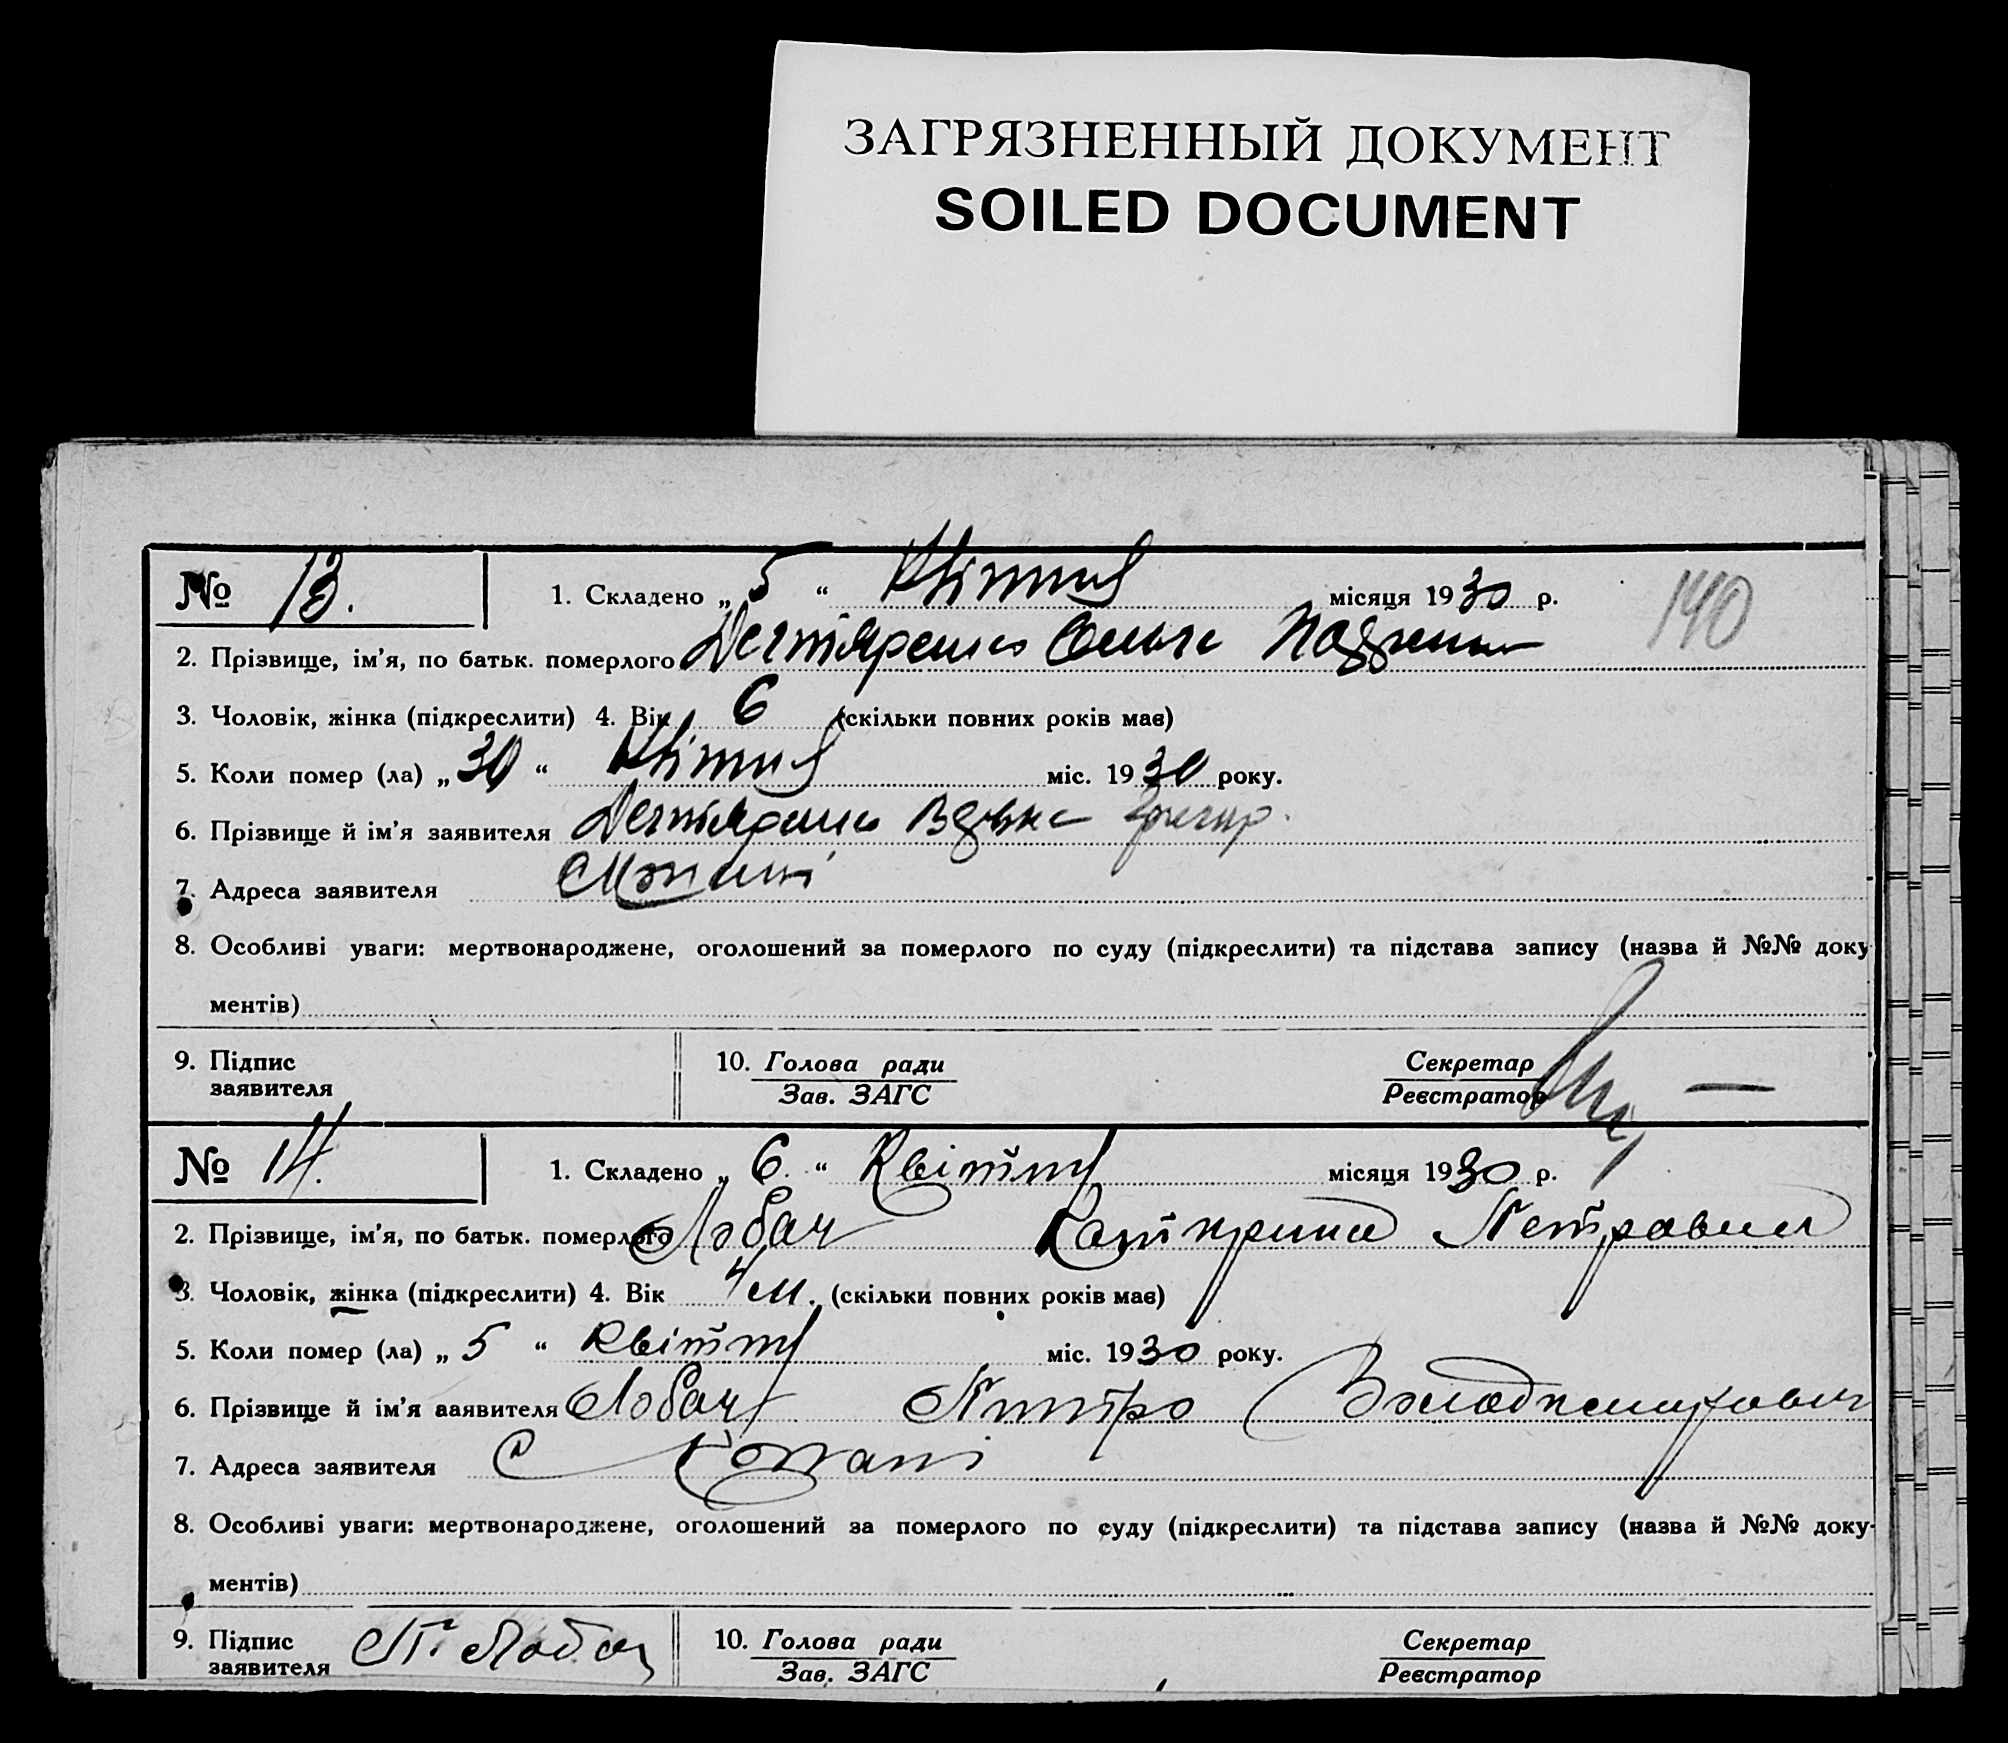 ЗАГРЯЗНЕННЫЙ ДОКУМЕНТ
SOILED DOCUMENT
140
№ 13. 1. Складено „ 5 “ Квітня місяця 1930 р.
2. Прізвище, ім'я, по батьк. померлого Ольга
3. Чоловік, жінка (підкреслити) 4. Вік 6 (скільки повних років має)
5. Коли помер (ла) „ 30 “ Квітня міс. 1930 року.
6. Прізвище й ім'я заявителя
7. Адреса заявителя
8. Особливі уваги: мертвонароджене, оголошений за померлого по суду (підкреслити) та підстава запису (назва й №№ доку
ментів)
9. Підпис 10. Голова ради Секретар
заявителя Зав. ЗАГС Реєстратор
№ 14. 1. Складено „ 6. “ Квітня місяця 1930 р.
2. Прізвище, ім'я, по батьк. померлого Лобач Катирина Петровна
3. Чоловік, жінка (підкреслити) 4. Вік 4 м. (скільки повних років має)
5. Коли помер (ла) „ 5 “ Квітня міс. 1930 року.
6. Прізвище й ім'я заявителя Лобач
7. Адреса заявителя С
8. Особливі уваги: мертвонароджене, оголошений за померлого по суду (підкреслити) та підстава запису (назва й №№ доку-
ментів)
9. Підпис П. Лобач 10. Голова ради Секретар
заявителя Зав. ЗАГС Реєстратор